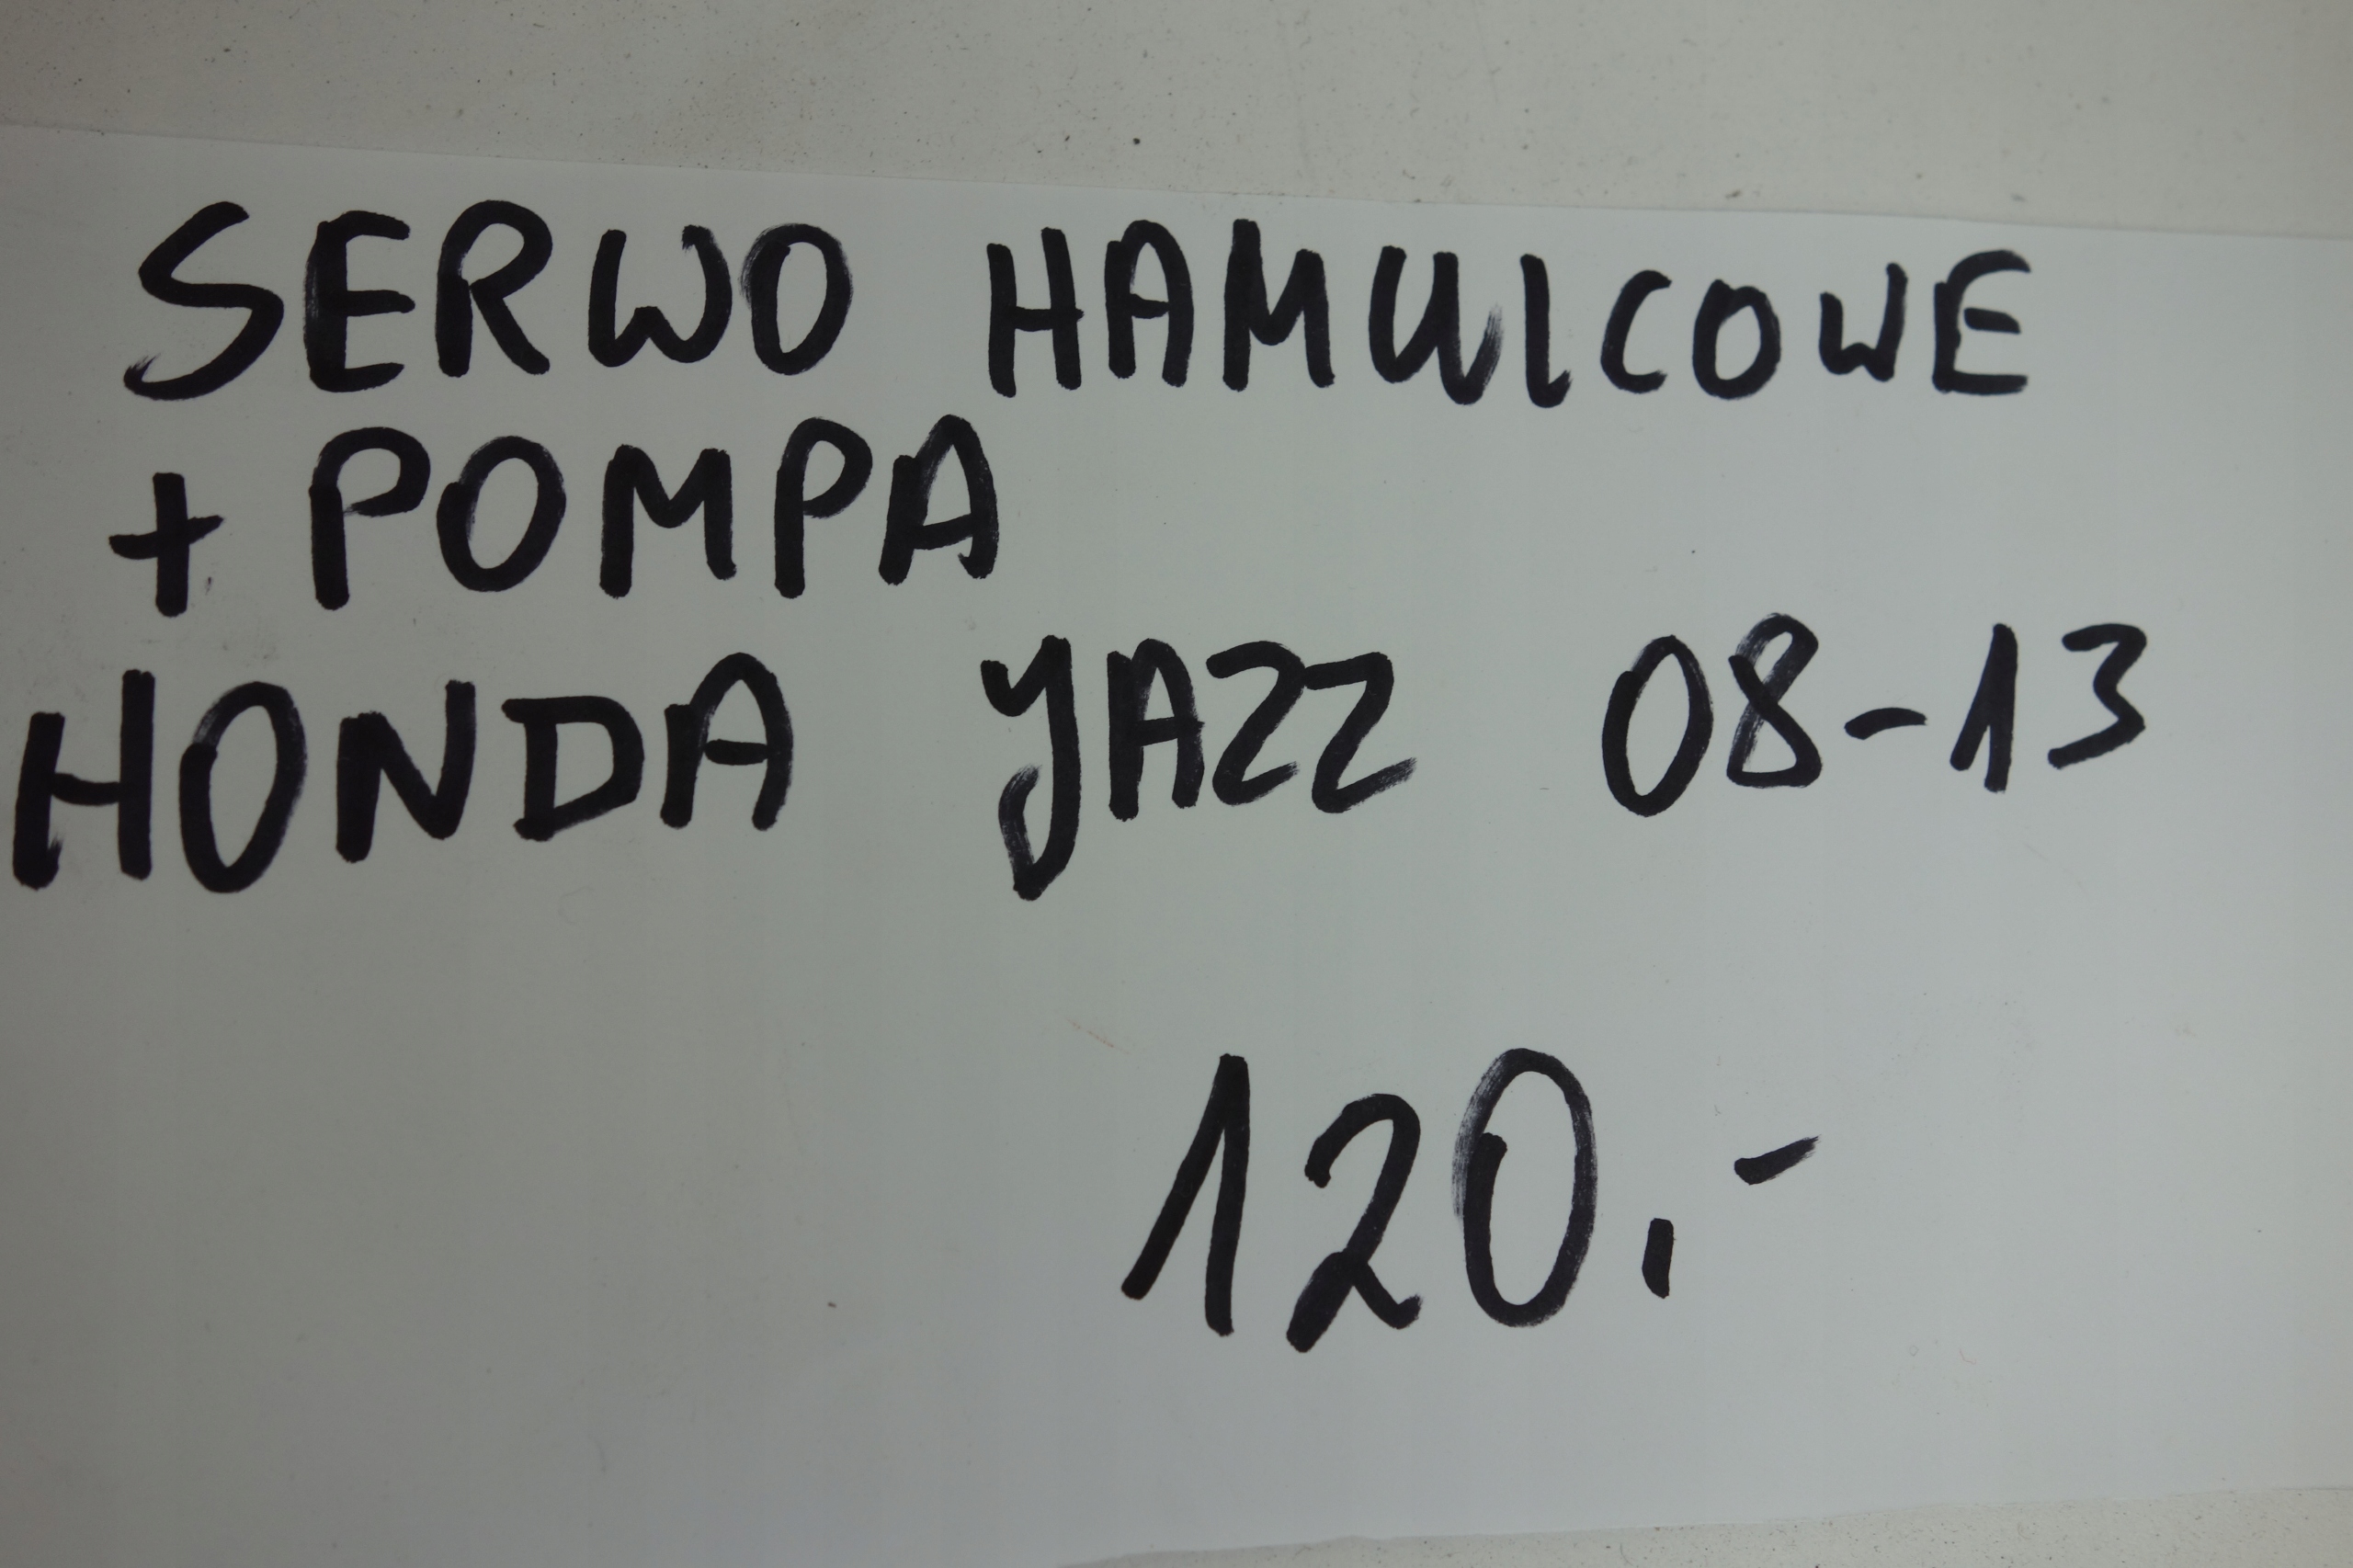 SERWO HAMULCOWE
+ POMPA
HONDA JAZZ 08-13
120.-